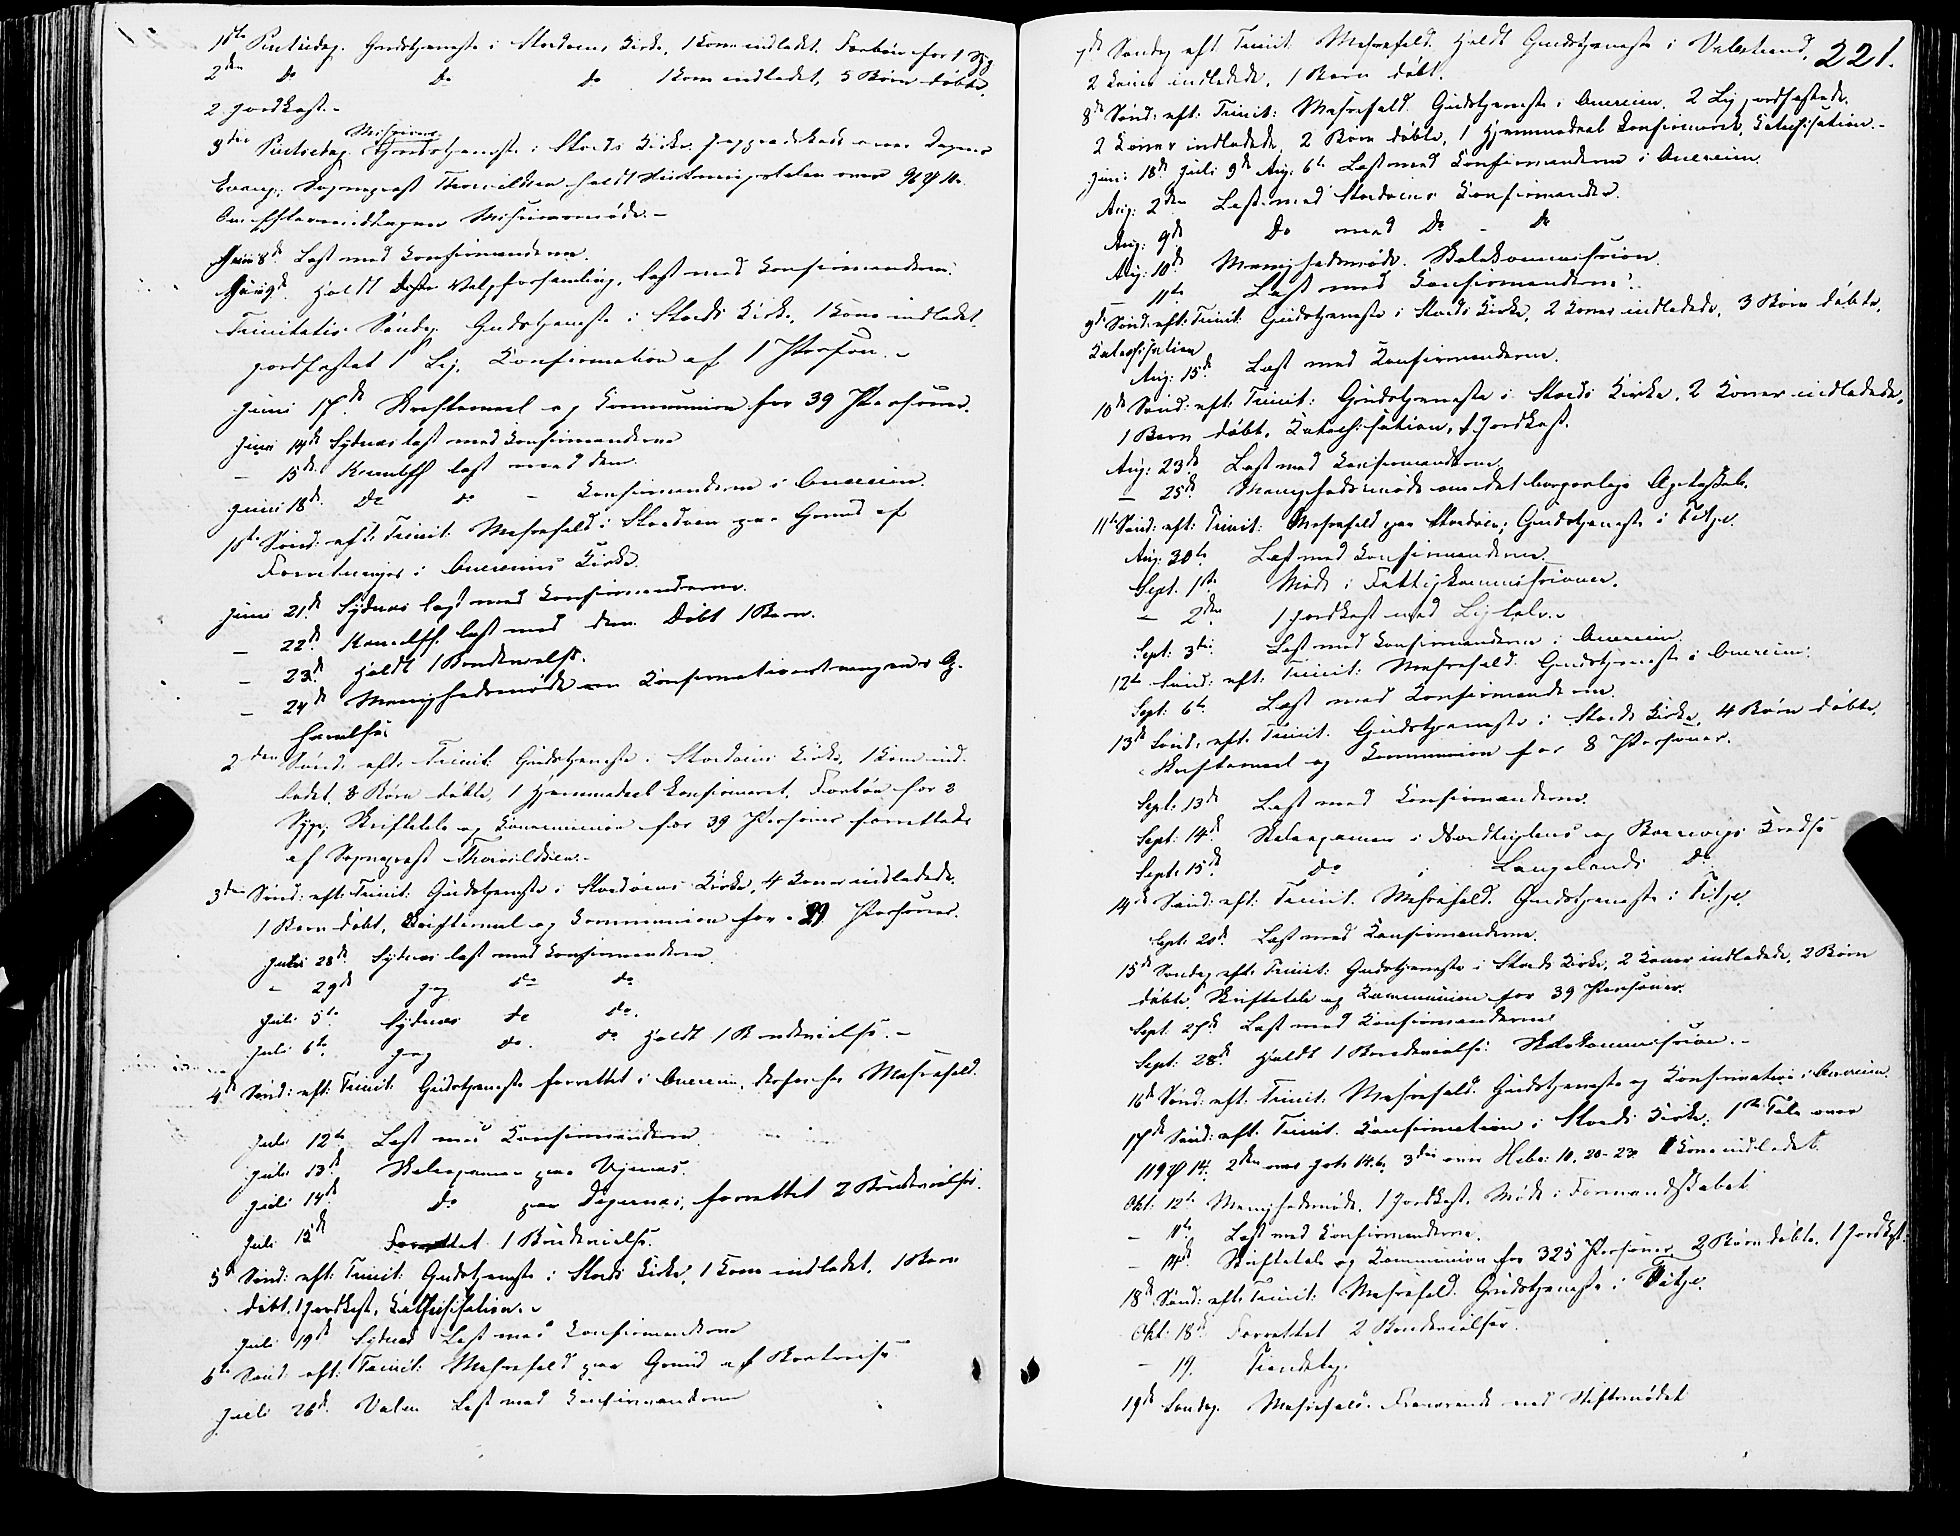 1ste Pintsedag. Gudstjeneste i Stordøens Kirke, 1 Kone indledet. Forbøn for 1 Syg
2den Do Do Do 1 Kone indledet, 5 Børn døbte,
2 Jordkast.-
3die Pintsedag. Missions Gudstjeneste i Stords Kirke. Jeg prædikede over Dagens
Evang., Sognepræst Thorvildsen holdt over 96 ψ 10.
Om Eftermiddagen Missionsmøde.-
Juni 8de Læst med Konfirmanderne.
Juni 9de Holdt Valgforsamling, læst med Konfirmanderne.
Trinitatis Søndag. Gudstjeneste i Stords Kirke, 1 Kone indledet,
jordfæstet 1 Lig. Konfirmation af 1 Person.-
Juni 17de Skriftemaal og Kommunion for 39 Personer.
Juni 14de Sydnes læst med Konfirmanderne
- 15de læst med dem.
Juni 18de Do do - Konfirmanderne i Quereim.
1ste Sønd: eft: Trinit: Messefald i Stordøen paa Grund af
Forretninger i Quereims Kirke.
Juni 21de Sydnes læst med Konfirmanderne.
- 22de læst med dem. Døbt 1 Barn.
- 23de Holdt 1 Brudevielse.
- 24de Menighedsmøde om Konfirmations
2den Sønd. eft. Trinit: Gudstjeneste i Stordøens Kirke, 1 Kone ind-
ledet, 8 Børn døbte, 1 Hjemmedøbt konfirmeret. Forbøn for 2
Syge; Skriftetale og Kommunion for 39 Personer forrettede
af Sognepræst Thorvildsen.-
3die Sønd: eft: Trinit: Gudstjeneste i Stordøens Kirke, 4 Koner indledede,
1 Barn døbt, Skriftemaal og Kommunion for 29 Personer.
Juni 28de Sydnes læst med Konfirmanderne
- 29de jeg do do
Juli 5te Sydnes do do.
Juli 6te jeg do. do Holdt 1 Brudevielse.-
4de Sønd: eft: Trinit. Gudstjeneste forrettet i Quereim, Messefald.
Juli 12te Læst med Konfirmanderne
Juli 13de Skoleexamen paa
Juli 14de Do paa Digernes, forrettet 2 Brudevielser.
Juli 15de Forrettet 1 Brudevielse.
5te Sønd: eft: Trinit: Gudstjeneste i Stords Kirke, 1 Kone indledet, 1 Barn
døbt, 1 Jordkast, Kathechisation.-
Juli 19de Sydnes Læst med Konfirmanderne
6te Sønd: eft: Trinit: Messefald paa Grund af Bortreise
Juli 26de. Valen Læst med Konfirmanderne
221.
7de Søndag eft Trinit: Messefald. Holdt Gudstjeneste i Valestrand,
2 Koner indledede, 1 Barn døbt.
8de Sønd: eft: Trinit: Messefald. Gudstjeneste i Quereim. 2 Lig jordfæstede.
2 Koner indledede, 2 Børn døbte, 1 Hjemmedøbt Konfirmeret, Katechisation.-
Juni: 18de Juli 9de Aug. 6te Læst med Konfirmanderne i Quereim.
Aug: 2den Læst med Stordøens Konfirmander.
Aug: 9de Do med Do - Do
Aug: 10de Menighedsmøde. Skolekommission.
- 11te Læst med Konfirmanderne.
9de Sønd: eft: Trinit: Gudstjeneste i Stords Kirke, 2 Koner indledede, 3 Børn døbte,
Katechisation
Aug: 15de Læst med Konfirmanderne.
10de Sønd: eft: Trinit: Gudstjeneste i Stords Kirke, 2 Koner indledede,
1 Barn døbt, Katechisation, 1 Jordkast.
Aug: 23de Læst med Konfirmanderne
- 25de Menighedsmøde om det borgerlige Ægteskab.
11te Sønd: eft: Trinit: Messefald paa Stordøen; Gudstjeneste i Fitje.
Aug. 30te Læst med Konfirmanderne
Sept. 1ste Møde i Fattigkommissionen.
- 2den 1 Jordkast med Ligtale.-
Sept: 3die Læst med Konfirmanderne i Quereim.
12te Sønd: eft: Trinit: Messefald. Gudstjeneste i Quereim.
Sept: 6te Læst med Konfirmanderne.
13de Sønd: eft. Trinit. Gudstjeneste i Stords Kirke, 4 Børn døbte.
Skriftemaal og Kommunion for 8 Personer.
Sept. 13de Læst med Konfirmanderne.
Sept: 14de Skoleexamen i og Kreds
Sept: 15de Do i Langelands Do
14de Sønd: eft: Trinit. Messefald. Gudstjeneste i Fitje.
Sept: 20de Læst med Konfirmanderne.
15de Søndag eft. Trinit: Gudstjeneste i Stords Kirke, 2 Koner indledede, 2 Børn
døbte, Skriftetale og Kommunion for 39 Personer.
Sept 27de Læst med Konfirmanderne
Sept: 28de Holdt 1 Brudevielse. Skolekommission.-
16de Sønd: eft. Trinit. Messefald. Gudstjeneste og Konfirmation i Quereim.
17de Sønd: eft. Trinit. Konfirmation i Stords Kirke, 1ste Tale over
119 ψ 14. 2den over Joh 14.6, 3die over Hebr: 10, 20-23. 1 Kone indledet.
Okt: 12te Menighedsmøde, 1 Jordkast. Møde i Formandskabet
- 11te Læst med Konfirmanderne.
- 14de Skriftetale og Kommunion for 325 Personer, 2 Børn døbte. 1 Jordkast.
18de Sønd: eft. Trinit: Messefald. Gudstjeneste i Fitje.
Okt: 18de Forrettet 2 Brudevielser.
- 19. Tiendetag.
19de Søndag. Messefald. Fraværende ved Stiftsmødet